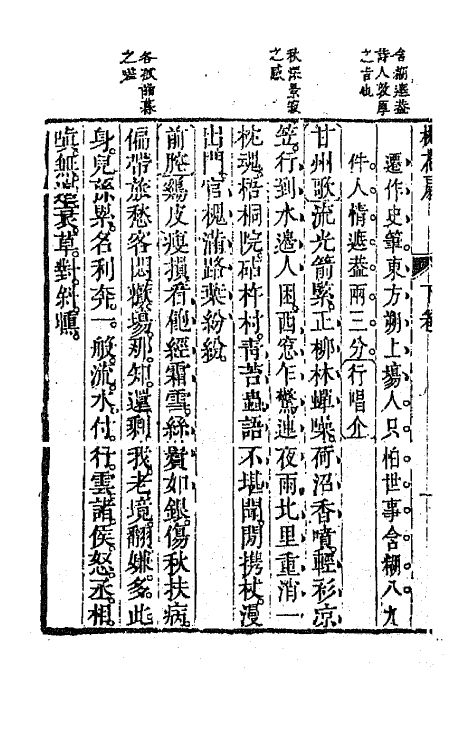 桃花扇 下卷
含糊遮蓋
詩人敦厚
之旨也
遷作史筆東方朔上塲人只怕世事含糊八九
件人情遮蓋兩三分行唱介
甘州歌流光箭緊正柳林蟬噪荷沼香噴輕衫凉
笠行到水邊人困西窓乍驚連夜雨北里重消一
秋深景寂
之感
枕魂梧桐院砧杵村青苔蟲語不堪聞閒携杖漫
出門宫槐滿路葉紛紛
前腔鷄皮瘦損看飽經霜雪絲鬢如銀傷秋扶病
偏帶旅愁客悶歡場那知還剩我老境翻嫌多此
身兒孫累名利奔一般流水付行雲諸侯怒丞相
嗔無邊衰草對斜曛